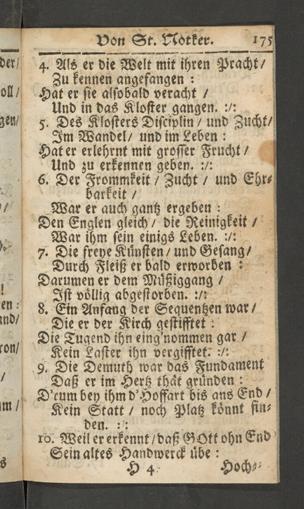 Von St. Notker. 175
4. Als er die Welt mit ihren Pracht/
Zu kennen angefangen :
Hat er sie alsobald veracht /
Und in das Kloster gangen. :/:
5. Des Klosters Disciplin / und Zucht/
Im Wandel / und im Leben :
Hat er erlehrnt mit grosser Frucht /
Und zu erkennen geben. :/:
6. Der Frommkeit / Zucht / und Ehr-
barkeit /
War er auch gantz ergeben :
Den Englen gleich / die Reinigkeit /
War ihm sein einigs Leben. :/:
7. Die freye Künsten / und Gesang/
Durch Fleiß er bald erworben :
Darumen er dem Müßiggang /
Ist völlig abgestorben. :/:
8. Ein Anfang der Sequentzen war /
Die er der Kirch gestifftet :
Die Tugend ihn eing'nommen gar /
Kein Laster ihn vergifftet. :/:
9. Die Demuth war das Fundament
Daß er im Hertz thät gründen :
D'rum bey ihm d'Hoffart bis ans End /
Kein Statt / noch Platz könnt fin-
den. :/:
10. Weil er erkennt / daß GOtt ohn End
Sein altes Handwerck übe :
H 4 Hoch-
der/
oll /
gen/
en :
und/
ron/
um /
s